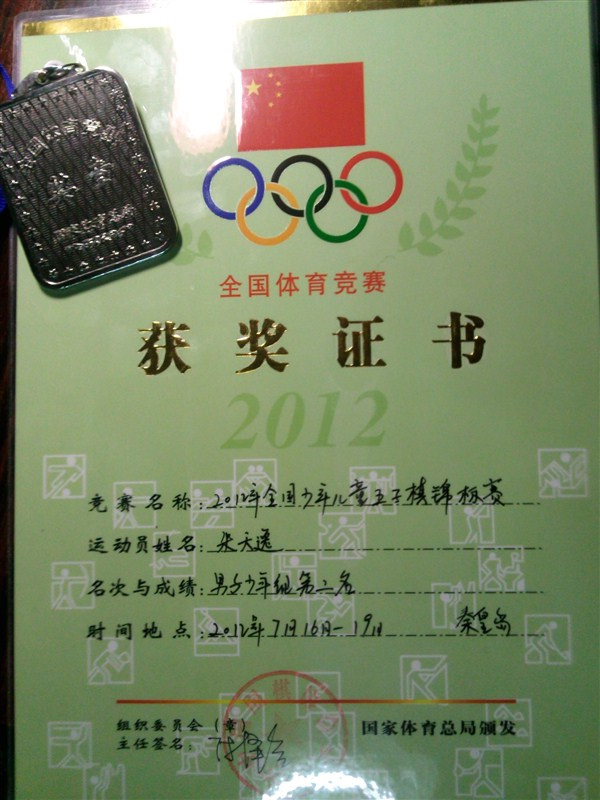 全国体育竞赛
获奖证书
2012
竞赛名称:2012年全国少年儿童五子棋锦标赛
运动员姓名:朱天逸
名次与成绩:男子少年组第二名
时间地点:2012年7月16日-19日 秦皇岛
组织委员会(章)
主任签名:
国家体育总局颁发